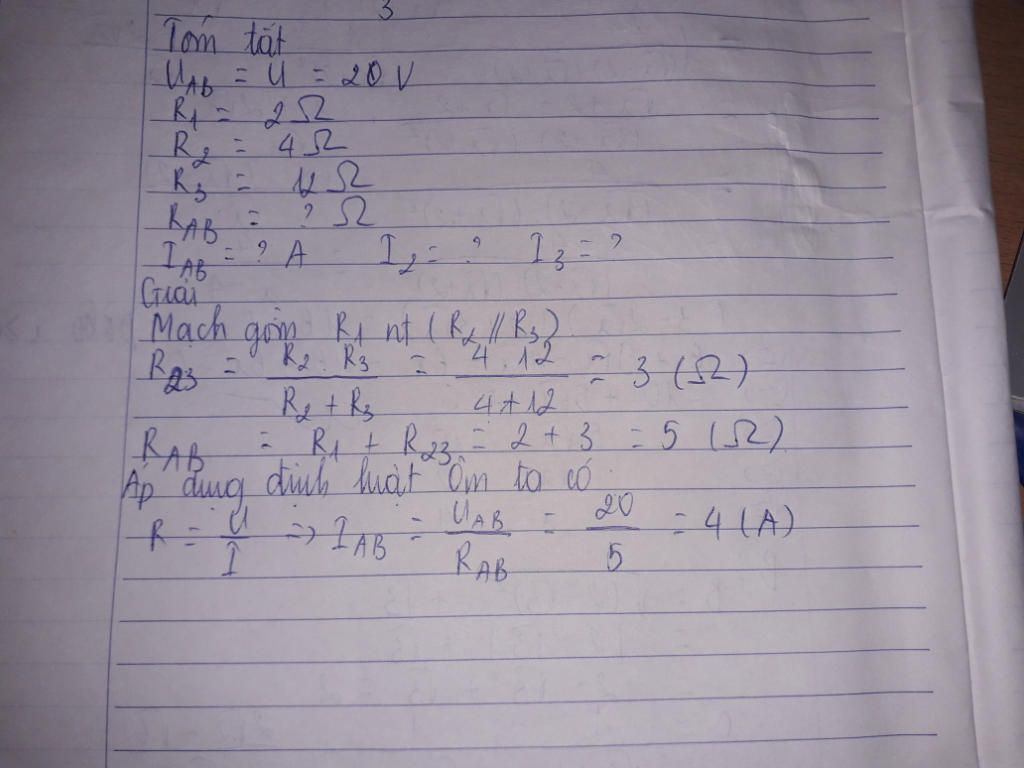 3
Tóm tắt
U_AB = U = 20 V
R_1 = 2 Ω
R_2 = 4 Ω
R_3 = 12 Ω
R_AB = ? Ω
I_AB = ? A I_2 = ? I_3 = ?
Giải
Mạch gồm R_1 nt (R_2 // R_3)
R_23 = (R_2 . R_3)/(R_2 + R_3) = (4 . 12)/(4 + 12) = 3 (Ω)
R_AB = R_1 + R_23 = 2 + 3 = 5 (Ω)
Áp dụng định luật Ôm ta có
R = U/I => I_AB = U_AB/R_AB = 20/5 = 4 (A)